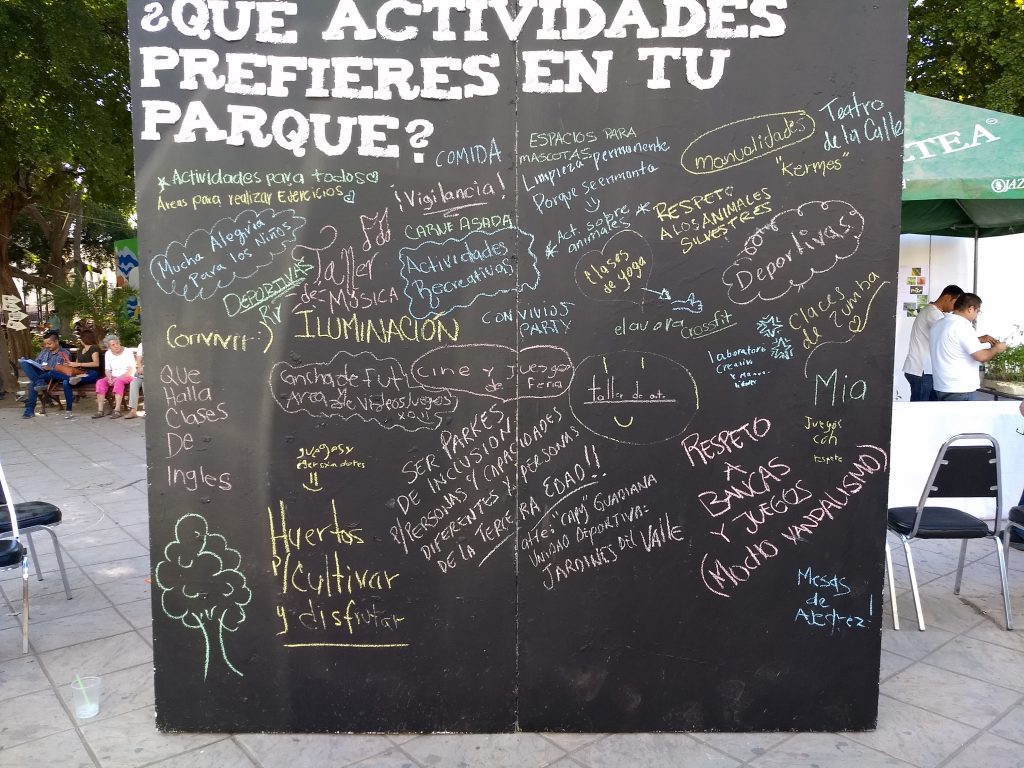 ¿QUÉ ACTIVIDADES
PREFIERES EN TU
PARQUE?
COMIDA
* Actividades para todos
Áreas para realizar Ejercicios
¡Vigilancia!
ESPACIOS PARA
MASCOTAS
Limpieza permanente
Porque se enmonta
manualidades
Teatro
de la Calle
"Kermes"
Mucha Alegria
Para los Niños
DEPORTIVAS
RV
Taller
de
MÚSICA
CARNE ASADA
Actividades
Recreativas
* Act. sobre
animales
RESPETO
A LOS ANIMALES
SILVESTRES
Clases
de yoga
Deportivas
Convivir :)
ILUMINACIÓN
CONVIVIOS
PARTY
elavora
Crossfit
Claces
de Zumba
QUE
Halla
Clases
De
Ingles
Cancha de Futt
Area de Videojuegos
XBOX
Cine y juegos
de Feria
taller de arte
laboratorio
Creativo
Mia
Juegos
con
respeto
juegos y
SER PARKES
DE INCLUSIÓN
P/PERSONAS Y CAPACIDADES
DIFERENTES Y PERSONAS
DE LA TERCERA EDAD!!
atte: "CAPY" GUADIANA
UNIDAD DEPORTIVA:
JARDINES DEL VALLE
RESPETO
A
BANCAS
Y JUEGOS
(MUCHO VANDALISMO)
Huertos
p/ Cultivar
y disfrutar
Mesas
de
Ajedrez!
LTEA